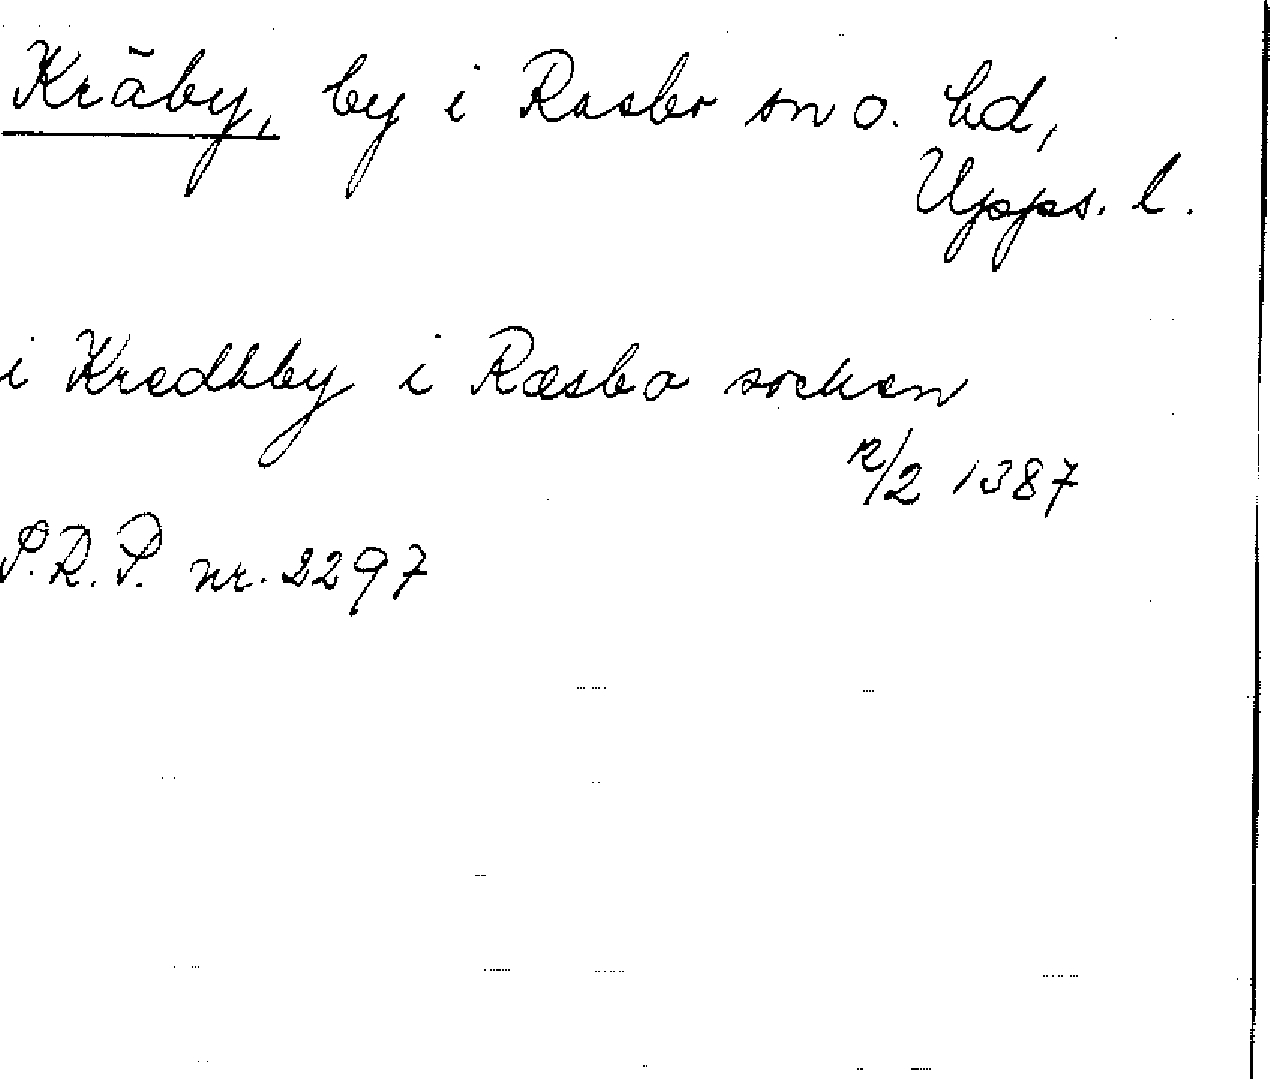 Kräby, by i Rasbo sn o. hd,
Upps. l.
i Kredhby i Ræsbo socken
12/2 1387
S.R.P. nr. 2297